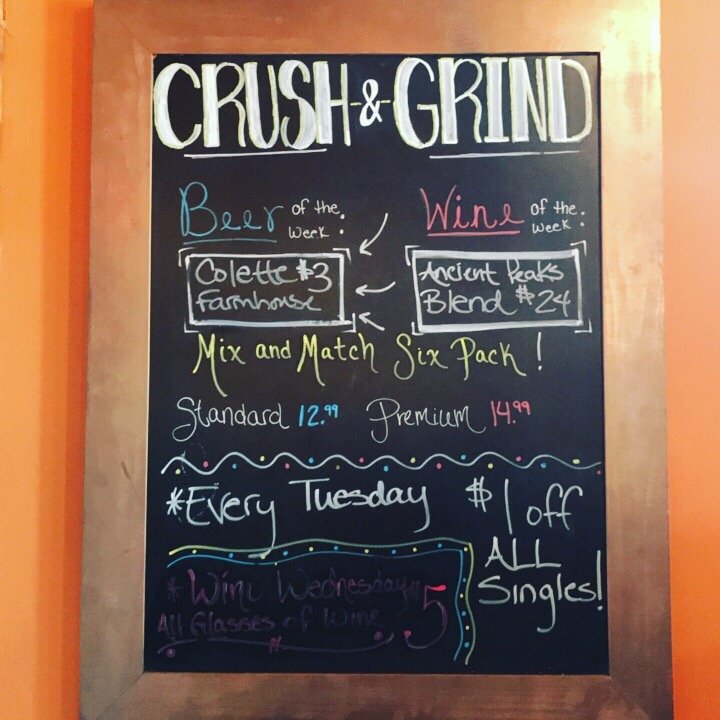 CRUSH-&-GRIND
Beer of the week:
Colette $3
Farmhouse
Wine of the week:
Ancient Peaks
Blend $24
Mix and Match Six Pack!
Standard 12.99 Premium 14.99
*Every Tuesday $1 off
ALL
Singles!
*Wine Wednesday $5
All Glasses of Wine